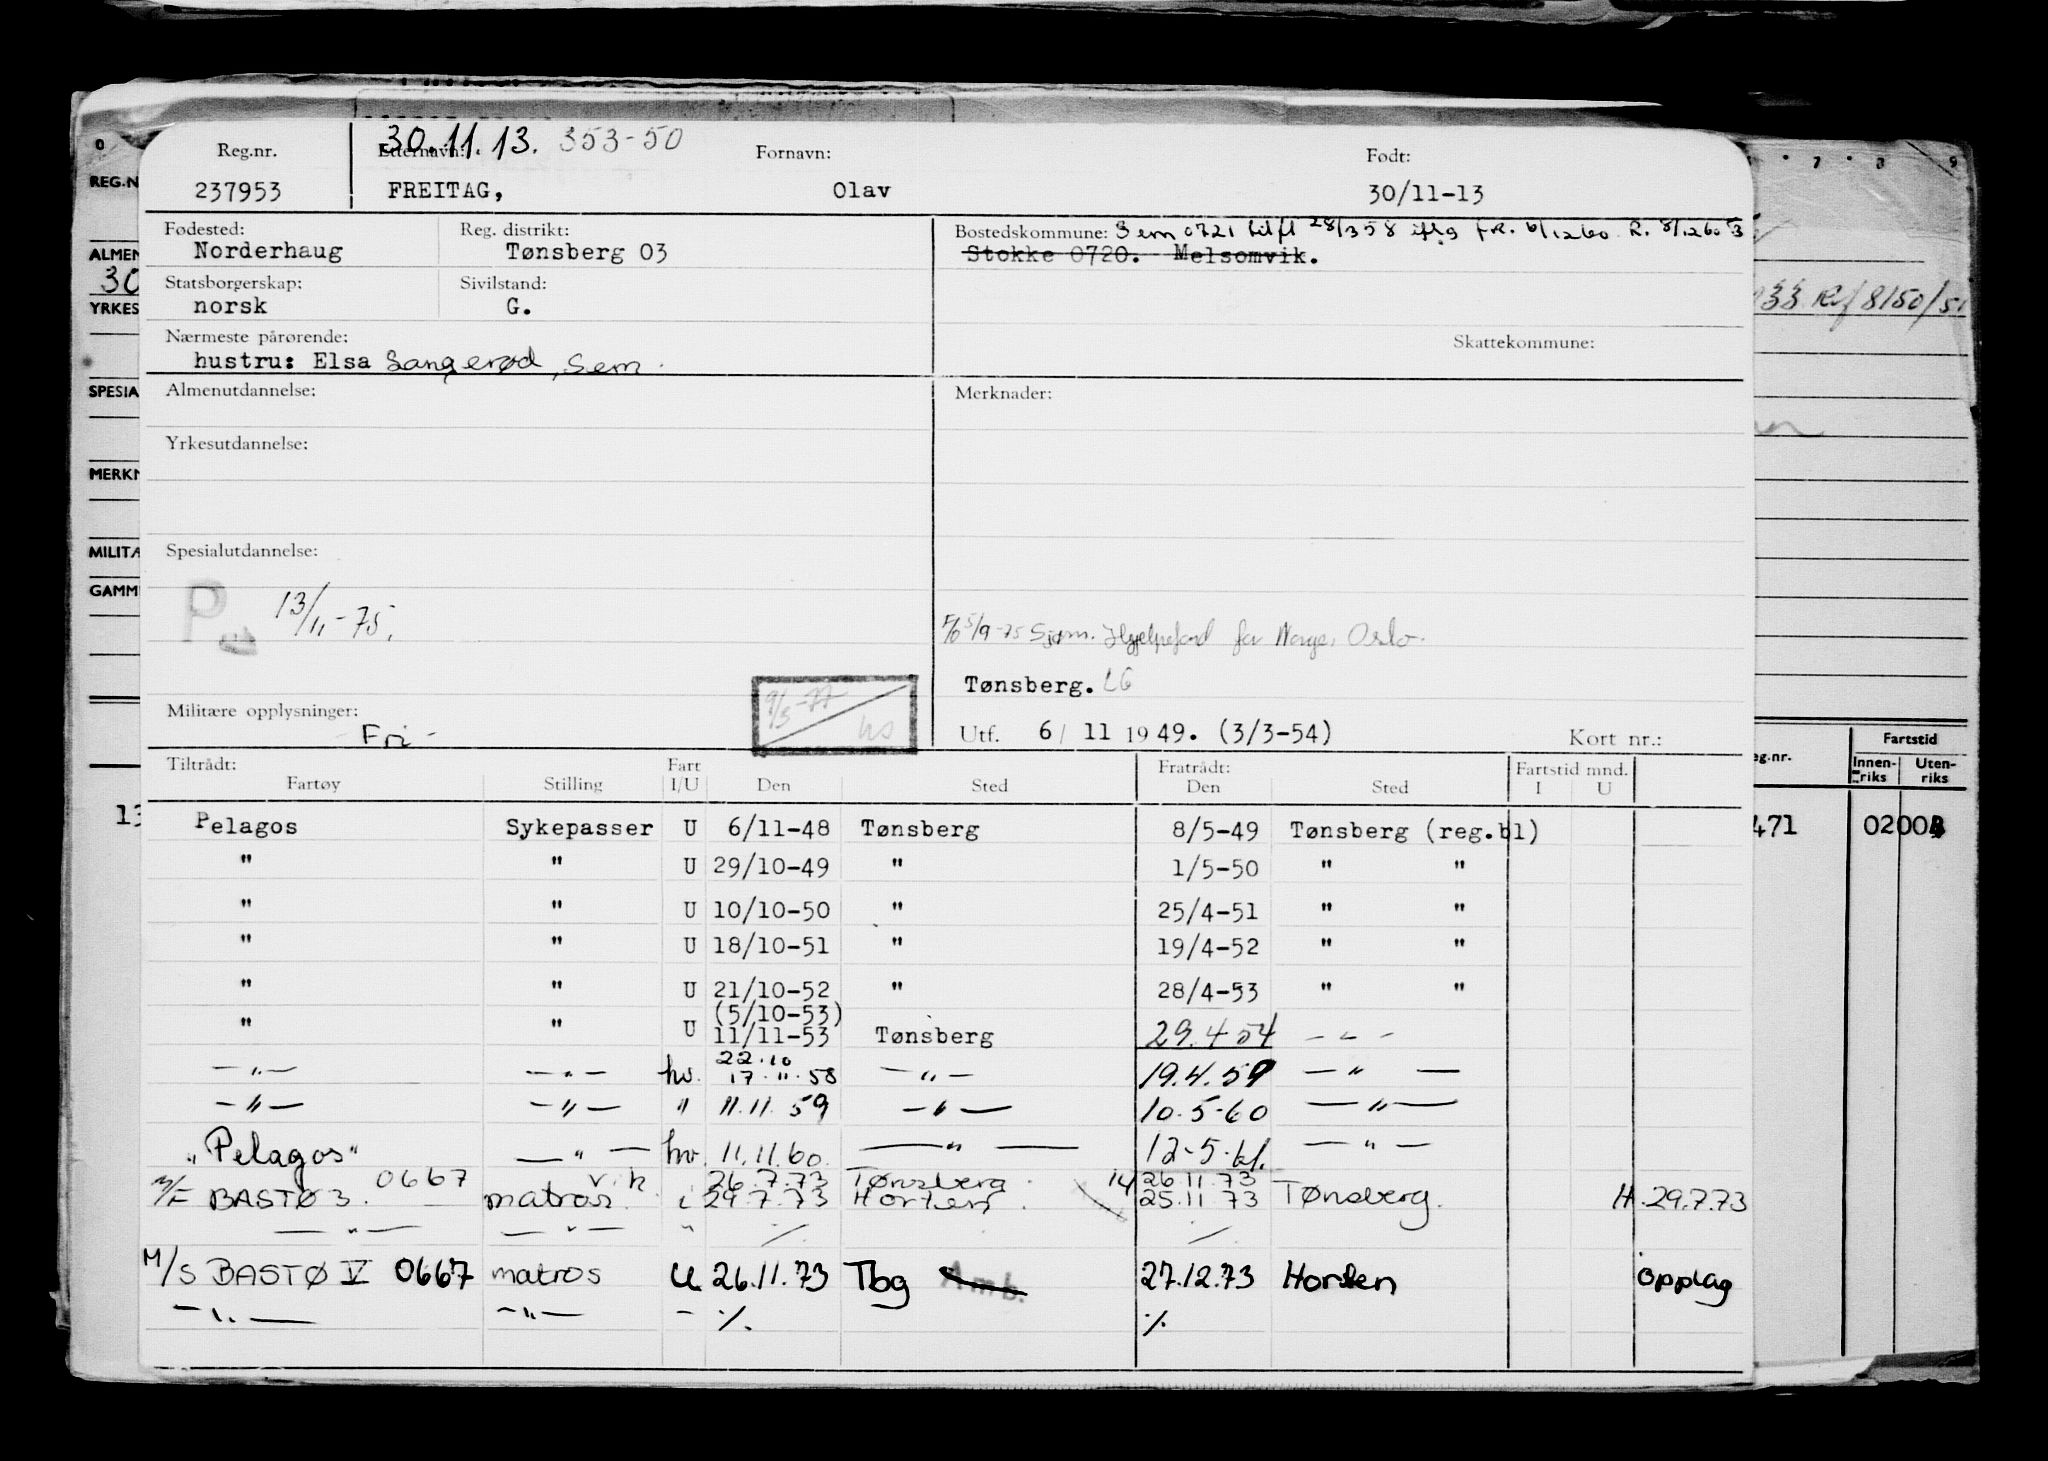 30.11.13. 353-50
Reg.nr. Etternavn: Fornavn: Født:
237953 FREITAG, Olav 30/11-13
Fødested: Reg. distrikt: Bostedskommune: Sem 0721 tilfl 28/3 58 iflg FR. 6/12 60 R. 8/12 60
Norderhaug Tønsberg 03 Stokke 0720. Melsomvik.
Statsborgerskap: Sivilstand:
norsk G.
Nærmeste pårørende: Skattekommune:
hustru: Elsa Sangerød, Sem.
Almenutdannelse: Merknader:
Yrkesutdannelse:
Spesialutdannelse:
P 13/11-75.
5/9-75 Sjøm. Hjelpefond for Norge, Oslo.
Tønsberg. LG
9/3-77 hs
Militære opplysninger: Utf. 6/ 11 1949. (3/3-54) Kort nr.:
- Fri -
Tiltrådt: Fart Fratrådt: Fartstid mnd.
Fartøy Stilling I/U Den Sted Den Sted I U
Pelagos Sykepasser U 6/11-48 Tønsberg 8/5-49 Tønsberg (reg.bl)
" " U 29/10-49 " 1/5-50 " "
" " U 10/10-50 " 25/4-51 " "
" " U 18/10-51 " 19/4-52 " "
" " U 21/10-52 " 28/4-53 " "
(5/10-53)
" " U 11/11-53 Tønsberg 29.4 54 - " -
22.10
—"— —"— hv. 17.11.58 —"— 19.4.59 —"—
—"— —"— " 11.11.59 —"— 10.5-60 —"—
"Pelagos" —"— hv. 11.11.60. —"— 12-5-61. —"—
0667 v.k. 26.7.73 Tønsberg. 14 26.11.73
M/F BASTØ 3. matros. i 29.7.73 Horten. 25.11 73 Tønsberg. H. 29.7.73
—"— —"— " ./. ./.
M/S BASTØ V 0667 matros U 26.11.73 Tbg Amb. 27.12.73 Horten opplag
—"— —"— - ./. ./.
REG.N
ALMEN
30
YRKES
SPESIA
MERKN
MILITÆ
GAMM
13
7 8 9
33 Rf 8150/51
eg.nr. Fartstid
Innen-riks Uten-riks
471 02 00